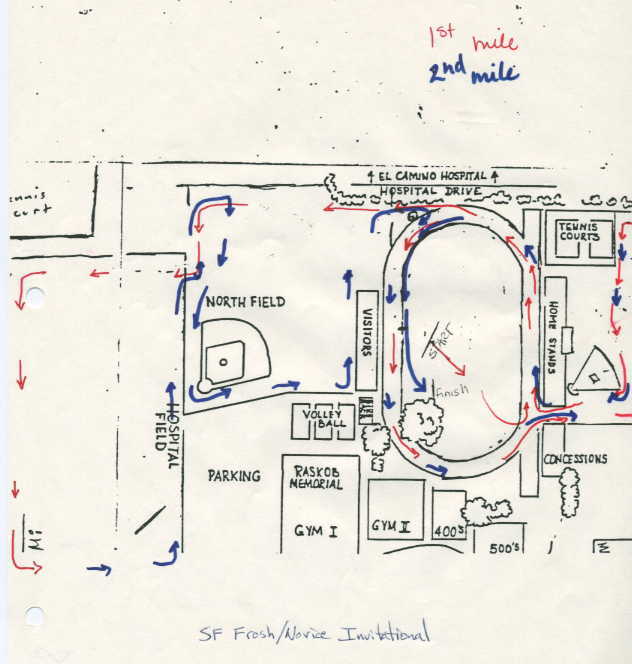 1st mile
2nd mile
↑ EL CAMINO HOSPITAL ↑
HOSPITAL DRIVE
ennis
curt
TENNIS
COURTS
NORTH FIELD
VISITORS
HOME STANDS
START
Finish
HOSPITAL
FIELD
VOLLEY
BALL
CONCESSIONS
PARKING
RASKOB
MEMORIAL
GYM I
GYM II
400'S
500'S
Mi
SF Frosh/Novice Invitational